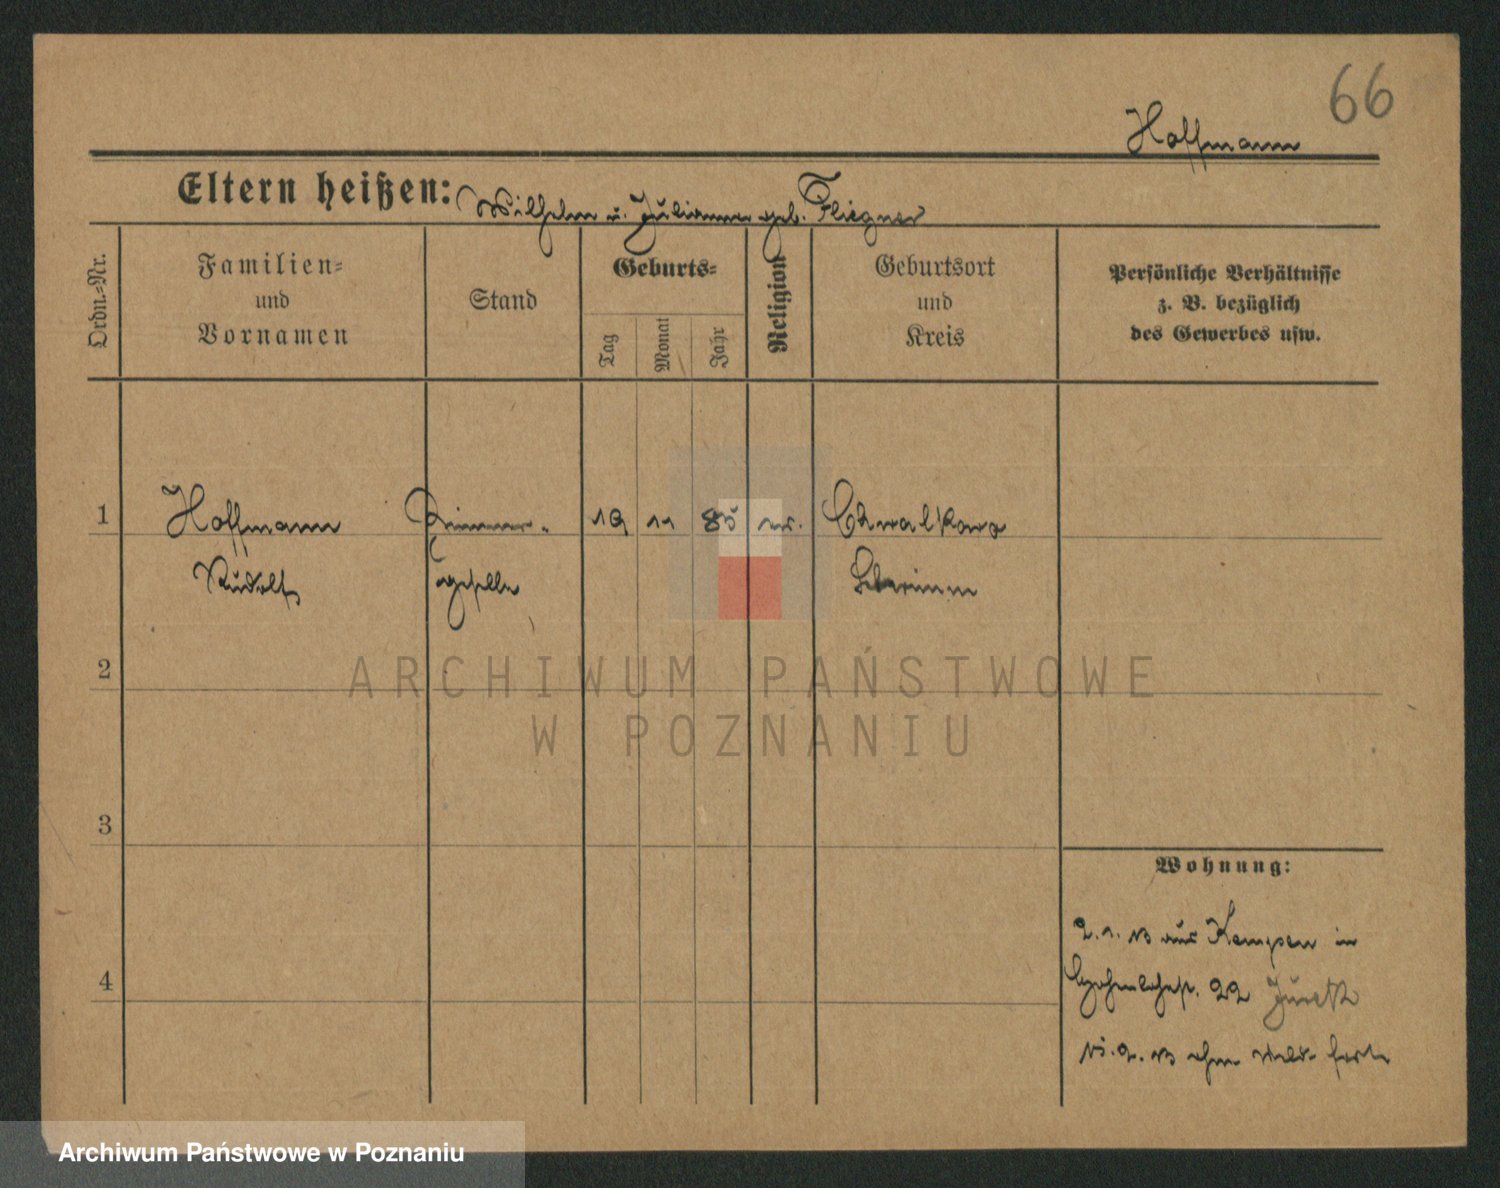 66
Hoffmann
Eltern heißen: Wilhelm u. Julianna geb. Fliegner
Ordn.-Nr.
Familien-
und
Vornamen
Stand
Geburts-
Tag
Monat
Jahr
Religion
Geburtsort
und
Kreis
Persönliche Verhältnisse
z. B. bezüglich
des Gewerbes usw.
1 Hoffmann 19 11 85 ev.
Rudolf geselle
2
3
4
Wohnung:
2.1.13 aus Kempen in
22
15.2.13 ohne
ARCHIWUM PAŃSTWOWE
W POZNANIU
Archiwum Państwowe w Poznaniu